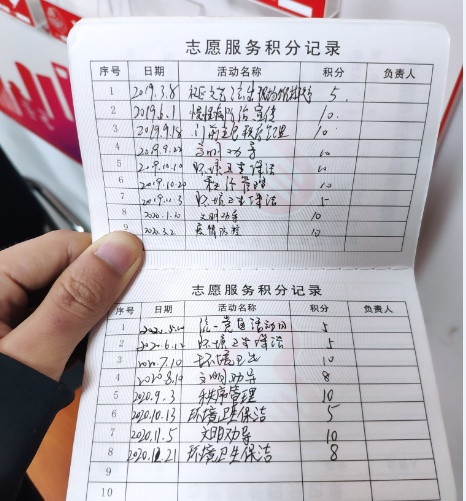 志愿服务积分记录
序号 日期 活动名称 积分 负责人
1 2019.3.8 5
2 2019.6.1 慢性病防治宣传 10
3 2019.9.18 门前三包秩序管理 10
4 2019.9.22 文明劝导 10
5 2019.10.10 环境卫生保洁 10
6 2019.10.20 秩序管理 10
7 2019.11.3 环境卫生保洁 5
8 2020.1.20 文明劝导 10
9 2020.3.2 疫情防控 10
志愿服务积分记录
序号 日期 活动名称 积分 负责人
1 统一党团活动日 5
2 2020.6.12 环境卫生保洁 5
3 2020.7.10 环境卫生 10
4 2020.8.19 文明劝导 8
5 2020.9.3 秩序管理 10
6 2020.10.13 环境卫生保洁 5
7 2020.11.5 文明劝导 10
8 2020.12.21 环境卫生保洁 8
9
10